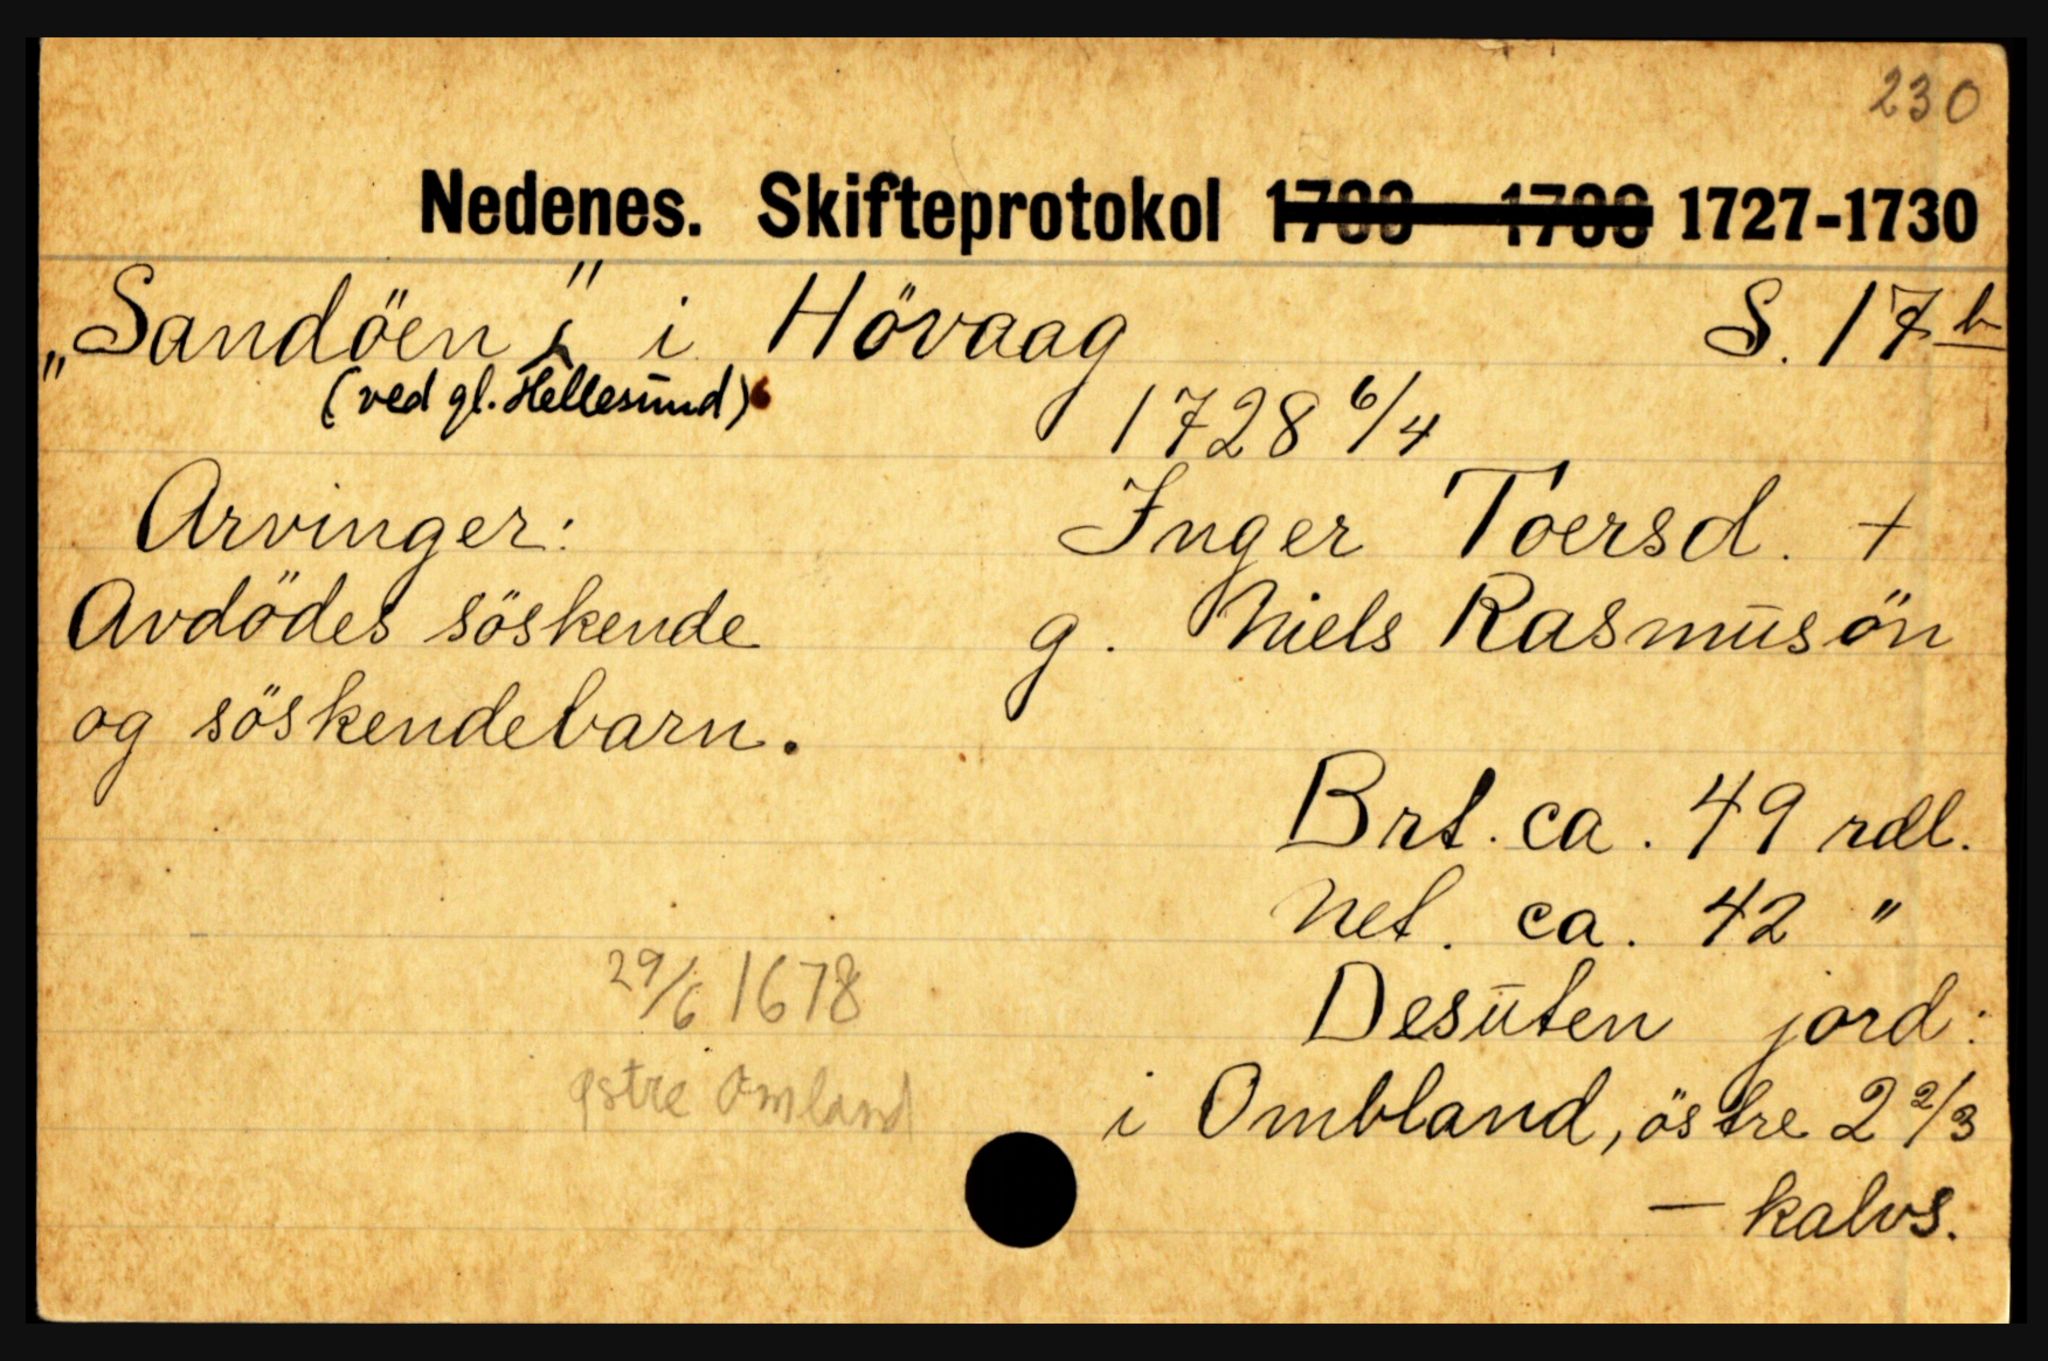 230
Nedenes. Skifteprotokol 1727-1730
„Sandöen" i Hövaag S. 17b
(ved gl. Hellesund)
1728 6/4
Arvinger:
Avdödes söskende
og söskendebarn.
Inger Toersd. +
g. Niels Rasmusön
Brt. ca. 49 rdl.
Net. ca. 42 "
Desuten jord:
i Ombland, östre 2 2/3
— kalvs.
29/6 1678
østre Omland